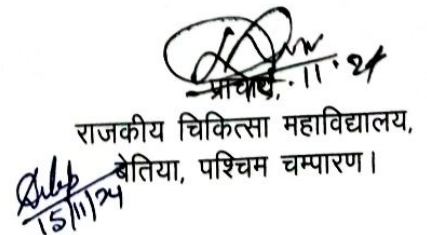 प्राचार्य,
राजकीय चिकित्सा महाविद्यालय,
बेतिया, पश्चिम चम्पारण।
15/11/24